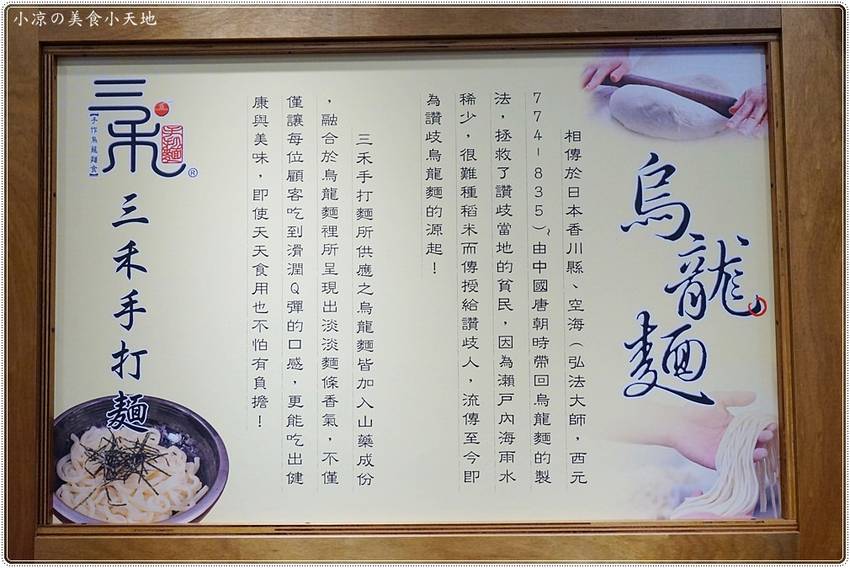 小凉の美食小天地
烏龍麵
相傳於日本香川縣、空海（弘法大師，西元
774-835）由中國唐朝時帶回烏龍麵的製
法，拯救了讚歧當地的貧民，因為瀨戶內海雨水
稀少，很難種稻米而傳授給讚歧人，流傳至今即
為讚歧烏龍麵的源起！
三禾手打麵所供應之烏龍麵皆加入山藥成份
，融合於烏龍麵裡所呈現出淡淡麵條香氣，不僅
僅讓每位顧客吃到滑潤Q彈的口感，更能吃出健
康與美味，即使天天食用也不怕有負擔！
三禾
手打麵
【手作烏龍麵食】
®
三禾手打麵